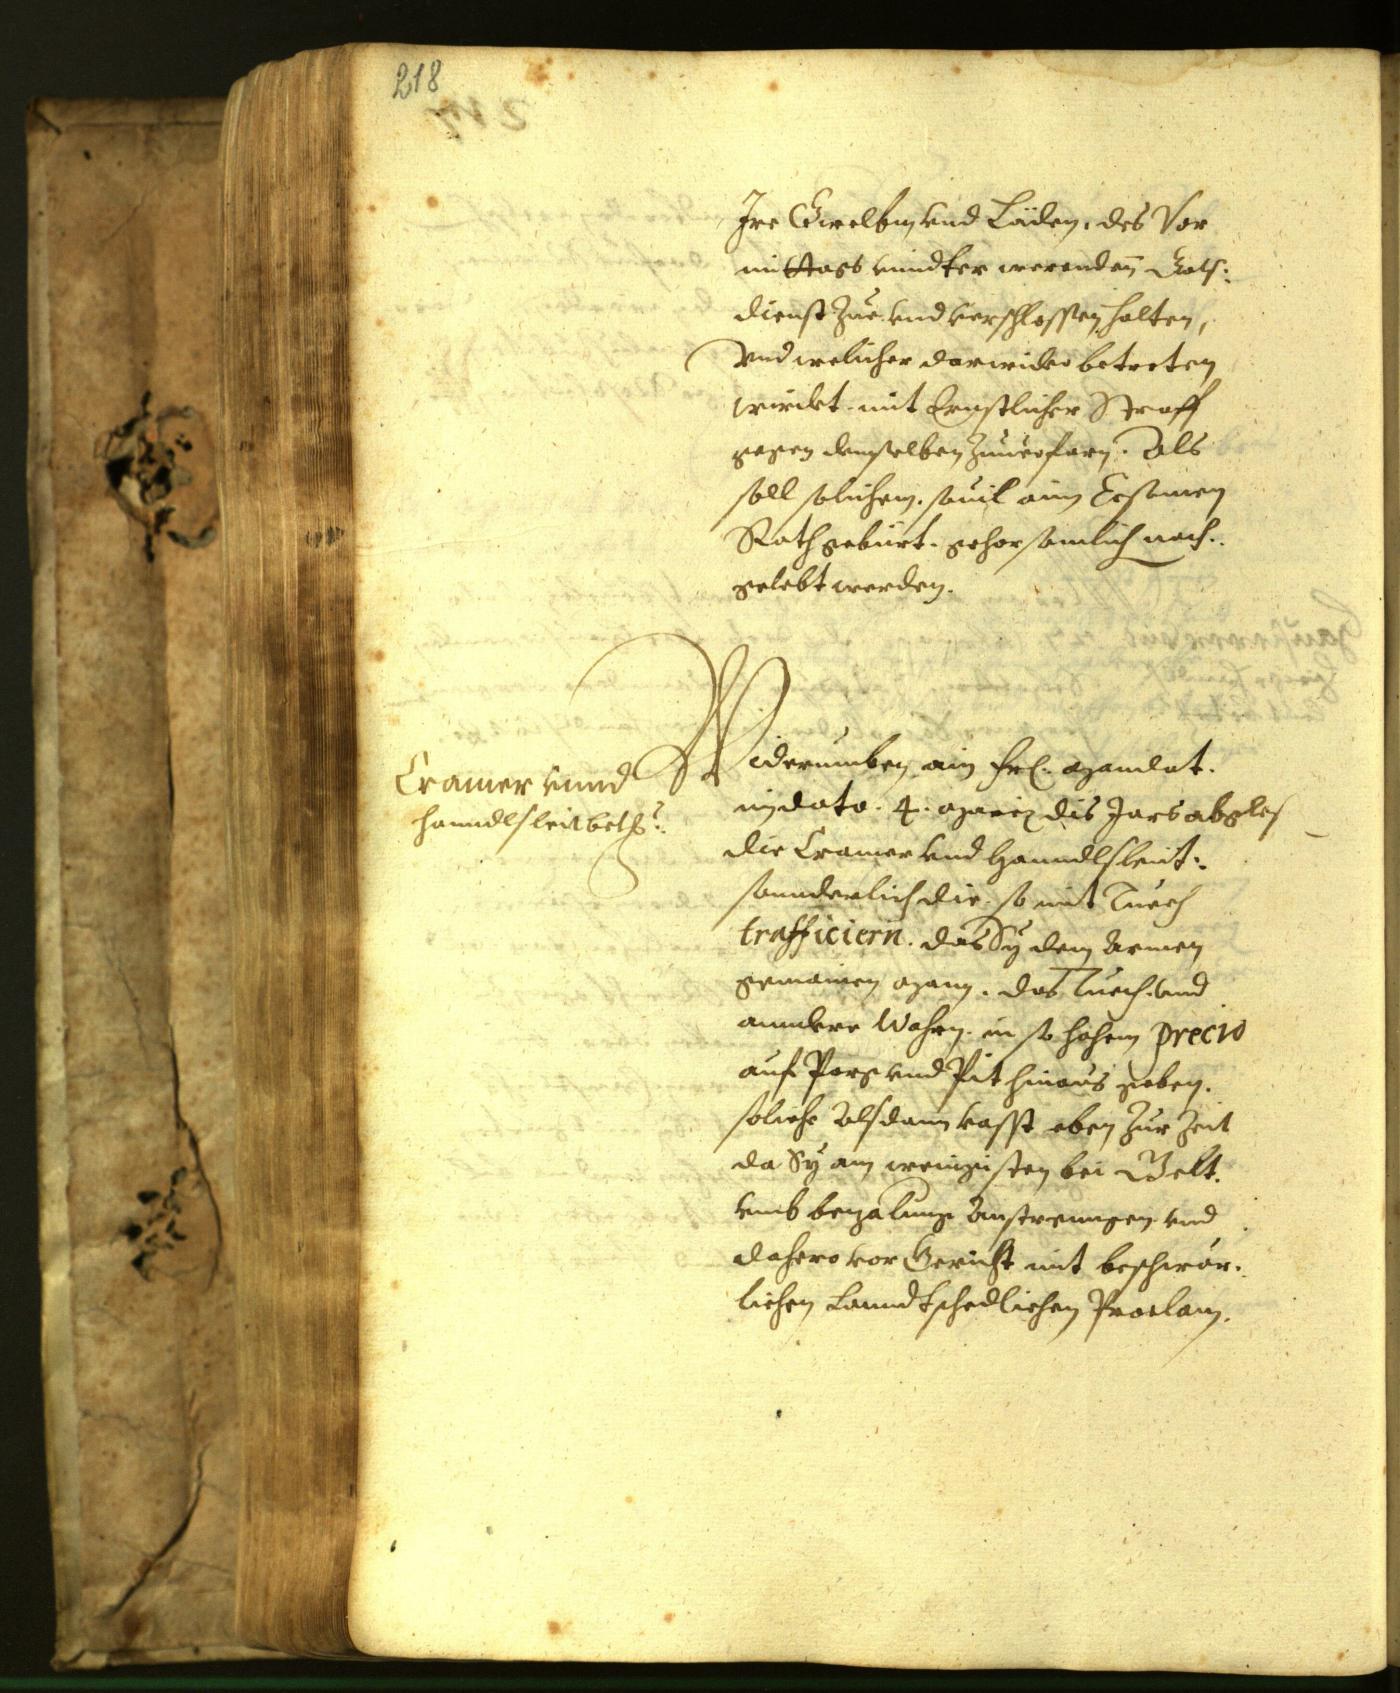 218
Ire Gwelben vnd Läden, des Vor
mittags vnndter werenden Gots:
dienst Zue vnd verschlossen halten,
Vnd welicher darwider betreten
wirdet mit Ernstlicher Straff
gegen demselben Zuuerfarn. Als
soll solichem, souil aim Ersamen
Rath gebürt, gehorsamlich nach-
gelebt werden.
Cramer vnnd
hanndlsleit betr:
Widerumben ain frl: Mandat.
in dato. 4. Marcy dis Jars abgles
die Cramer vnd Hanndlsleit:
sonnderlich die so mit Tuech
trafficiern. das Sy dem Armen
gemainen Mann, das Tuech vnd
anndere Wahrn in so hohem precio
auf Porg vnd Pit hinaus geben.
soliche Alsdann fasst eben Zur Zeit
da Sy am wenigisten bei Gelt.
vmb bezalung Anstrenngen vnd
dahero vor Gericht mit beschwär-
lichen Lanndtschedlichen Proclam.